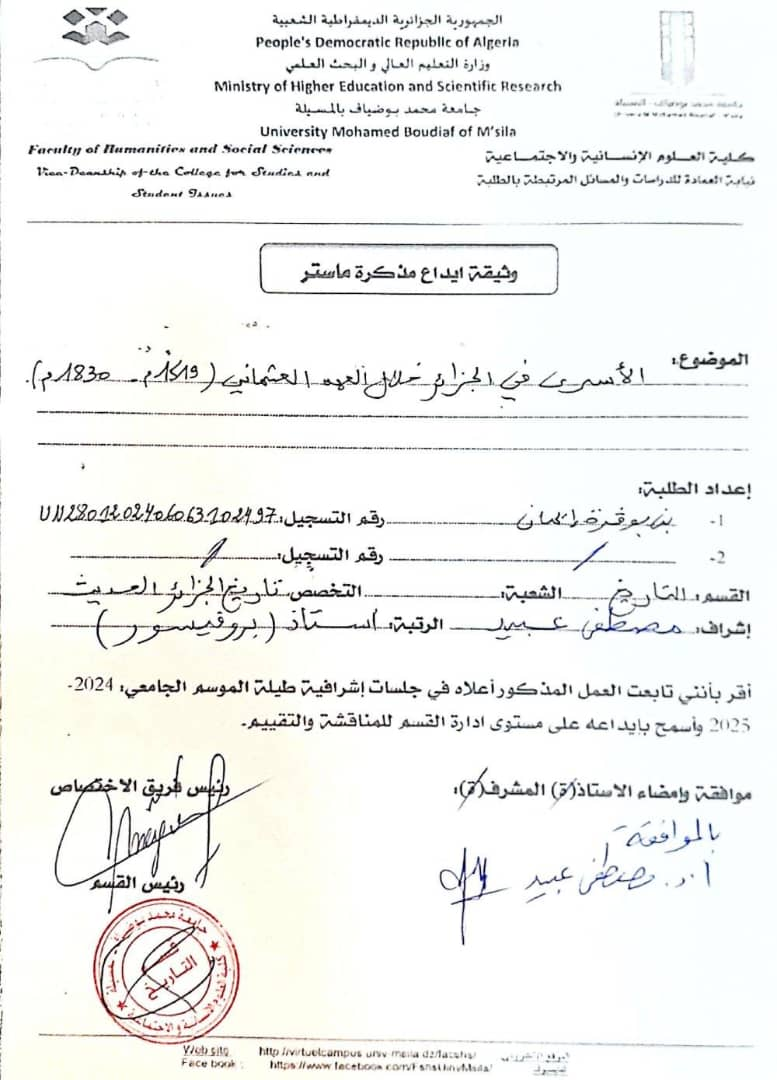 الجمهورية الجزائرية الديمقراطية الشعبية
People's Democratic Republic of Algeria
وزارة التعليم العالي و البحث العلمي
Ministry of Higher Education and Scientific Research
جامعة محمد بوضياف بالمسيلة
University Mohamed Boudiaf of M'sila
Faculty of Humanities and Social Sciences
Vice-Deanship of the College for Studies and
Student Issues
كلية العلوم الإنسانية والاجتماعية
نيابة العمادة للدراسات والمسائل المرتبطة بالطلبة
وثيقة ايداع مذكرة ماستر
الموضوع:
الأسرى في الجزائر خلال العهد العثماني (1519م - 1830م).
إعداد الطلبة:
1- بن بوقرة إيمان رقم التسجيل: UN2801202406063102497
2- / رقم التسجيل: /
القسم: التاريخ الشعبة: التخصص تاريخ الجزائر الحديث
إشراف: مصطفى عبيد الرتبة: استاذ (بروفيسور)
أقر بأنني تابعت العمل المذكور أعلاه في جلسات إشرافية طيلة الموسم الجامعي: 2024-
2025 وأسمح بايداعه على مستوى ادارة القسم للمناقشة والتقييم.
موافقة وإمضاء الاستاذ(ة) المشرف(ة):
بالموافقة
أ.د. مصطفى عبيد
رئيس فريق الاختصاص
رئيس القسم
جامعة محمد بوضياف - المسيلة
قسم
التاريخ
كلية العلوم الإنسانية والاجتماعية
Web site http://virtuelcampus.univ-msila.dz/facshs/
Face book : https://www.facebook.com/FshsUnivMsila/